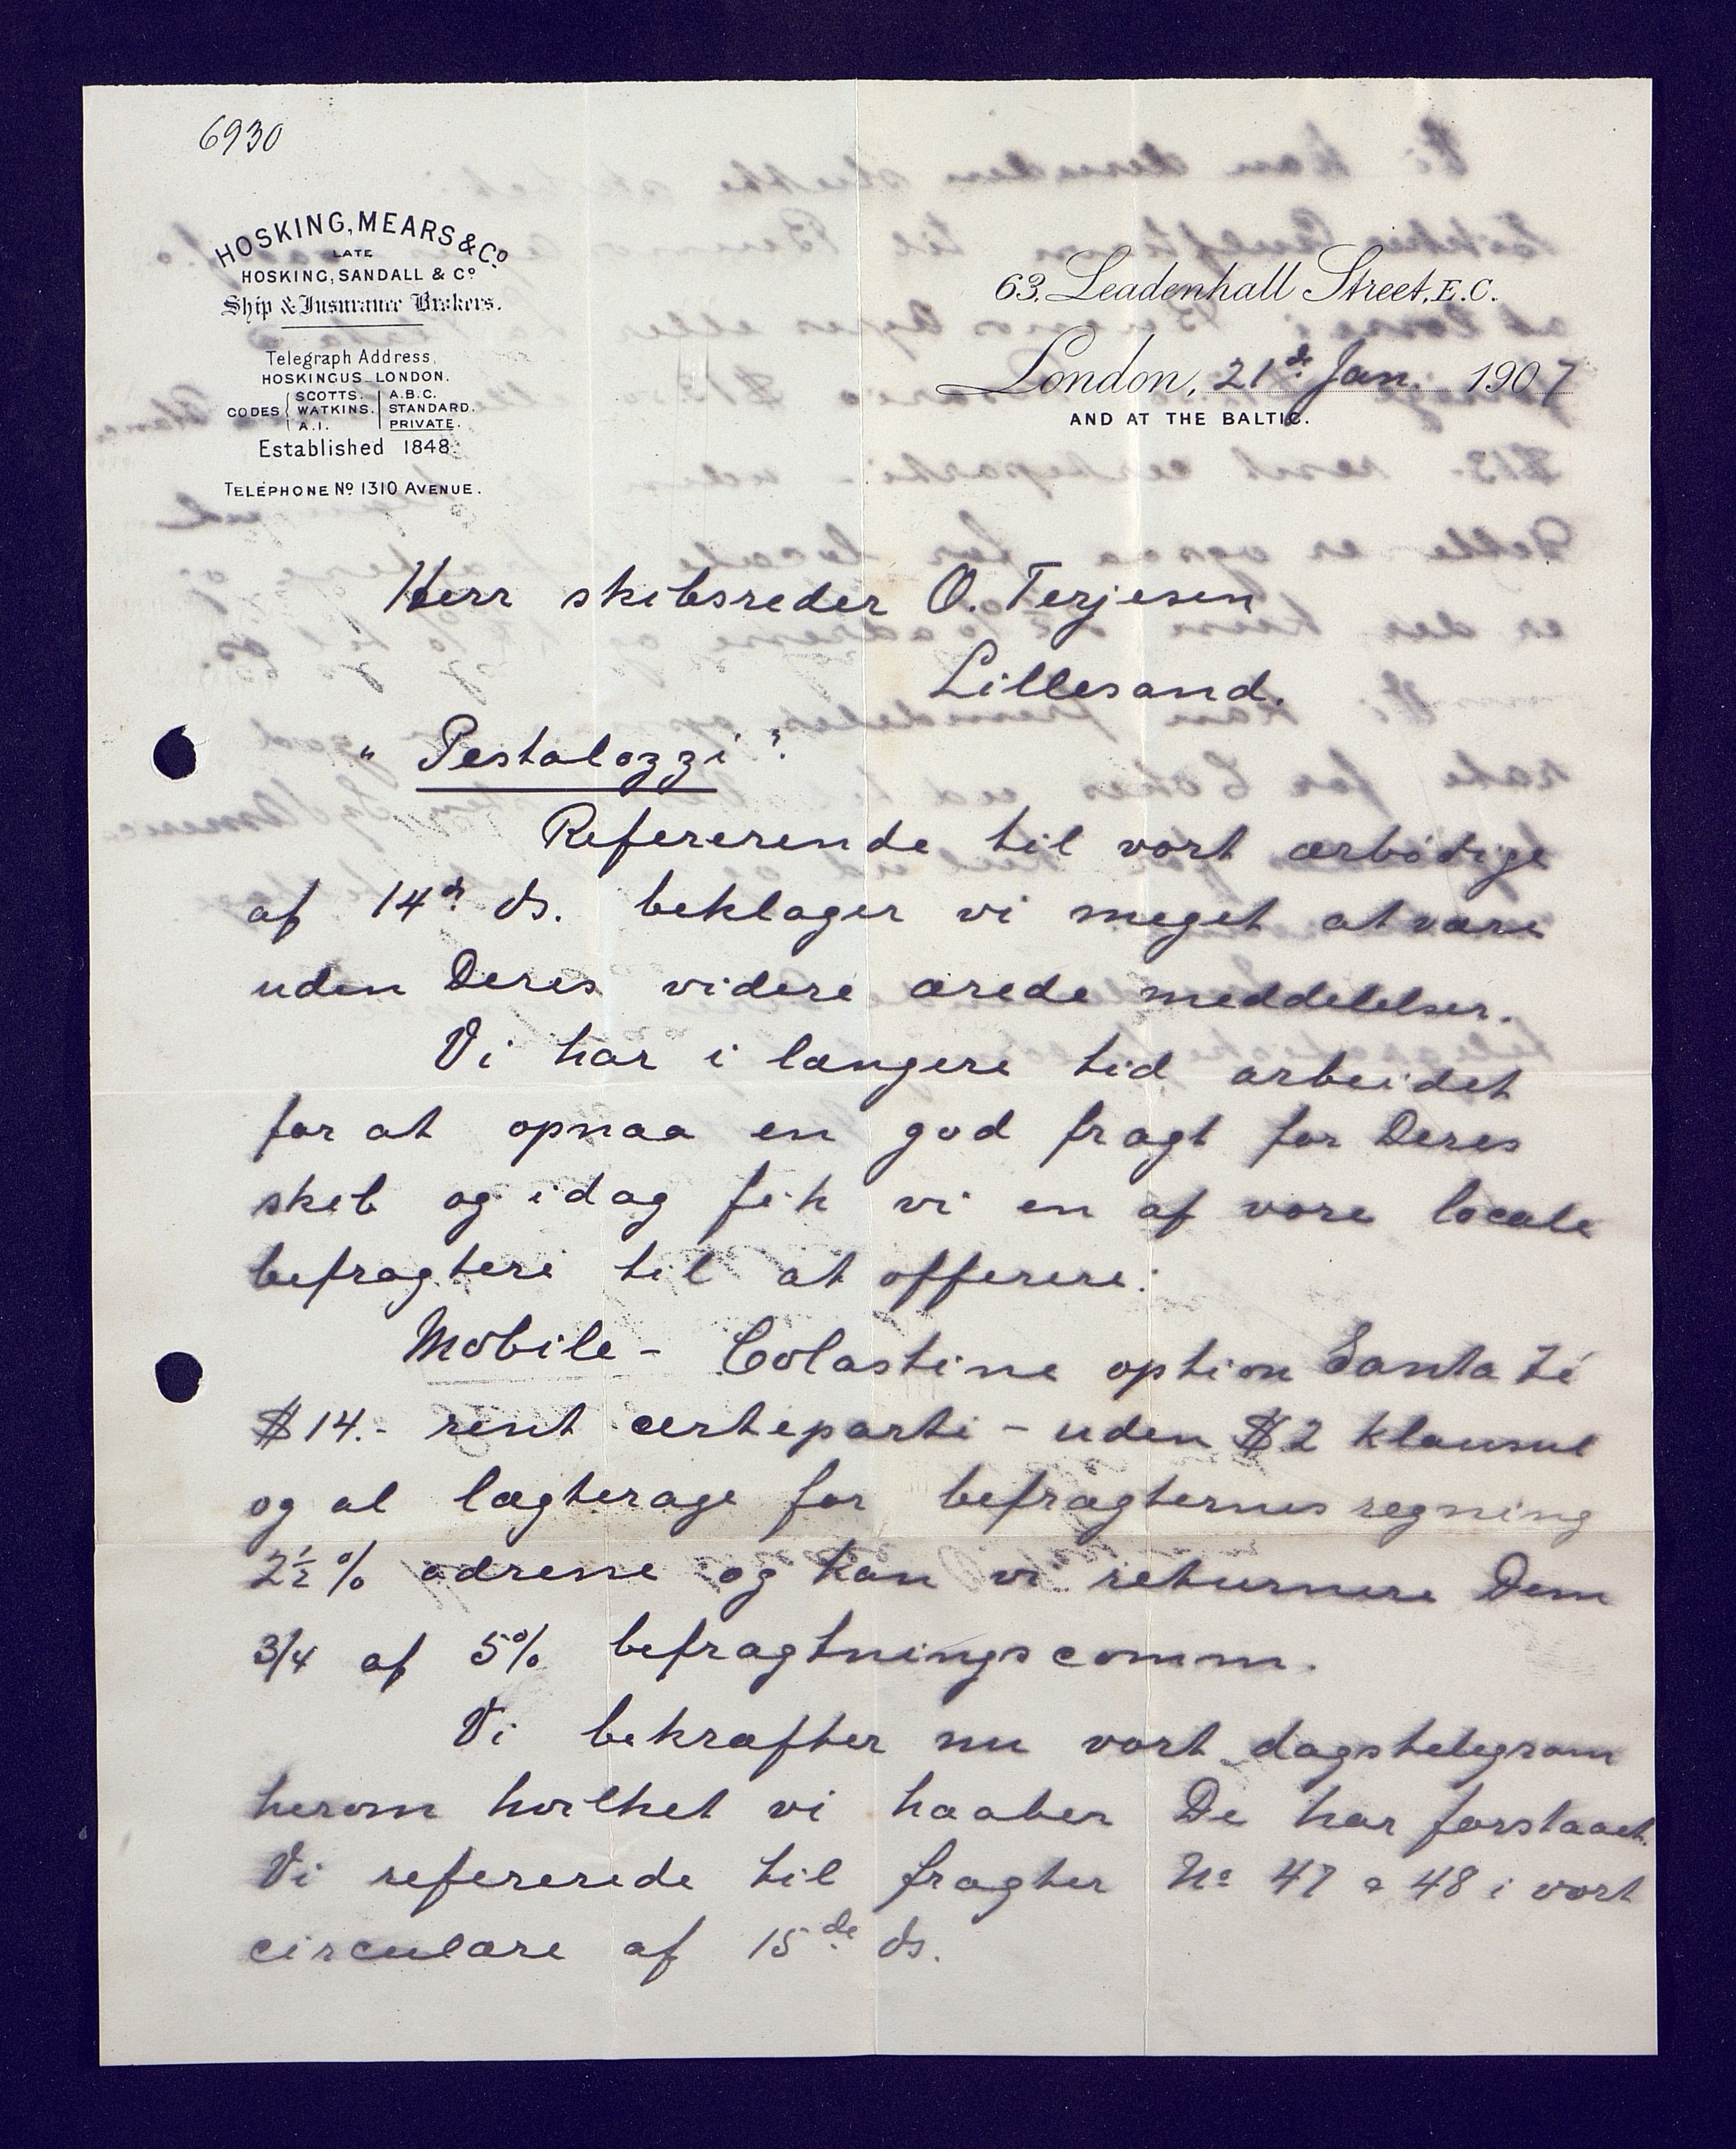 6930
HOSKING, MEARS & Co
LATE
HOSKING, SANDALL & Co
Ship & Insurance Brokers.
Telegraph Address,
HOSKINGUS LONDON.
CODES { SCOTTS. | A.B.C.
WATKINS. | STANDARD.
A.I. | PRIVATE.
Established 1848.
TELEPHONE No 1310 AVENUE.
63, Leadenhall Street, E.C.
London, 21de Jan. 1907
AND AT THE BALTIC.
Herr skibsreder O. Terjesen
Lillesand.
"Pestalozzi".
Refererende til vort ærbødige
af 14d ds. beklager vi meget at være
uden Deres videre ærede meddelelser.
Vi har i længere tid arbeidet
for at opnaa en god fragt for Deres
skib og idag fik vi en af vore locale
befragtere til at offerere:
Mobile - Colastine option Santa Fé
$14.- rent certeparti - uden $2 klausul
og al lægterage for befragternes regning
2½% adresse og kan vi returnere Dem
3/4 af 5% befragtningscomm.
Vi bekræfter nu vort dagstelegram
herom hvilket vi haaber De har forstaaet.
Vi refererede til fragter No 47 & 48 i vort
circulære af 15de ds.